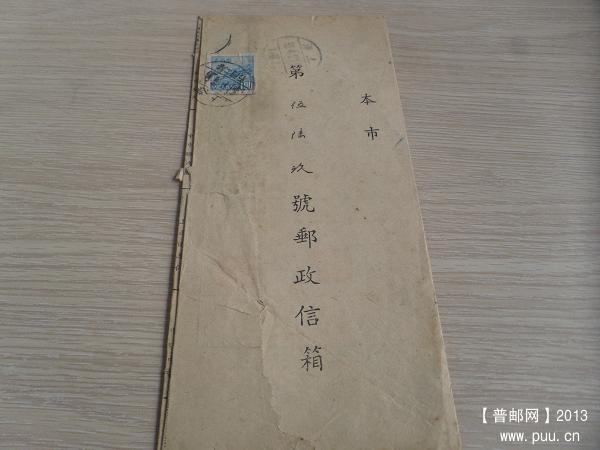 本市
第伍陆玖號郵政信箱
【普邮网】2013
www.puu.cn